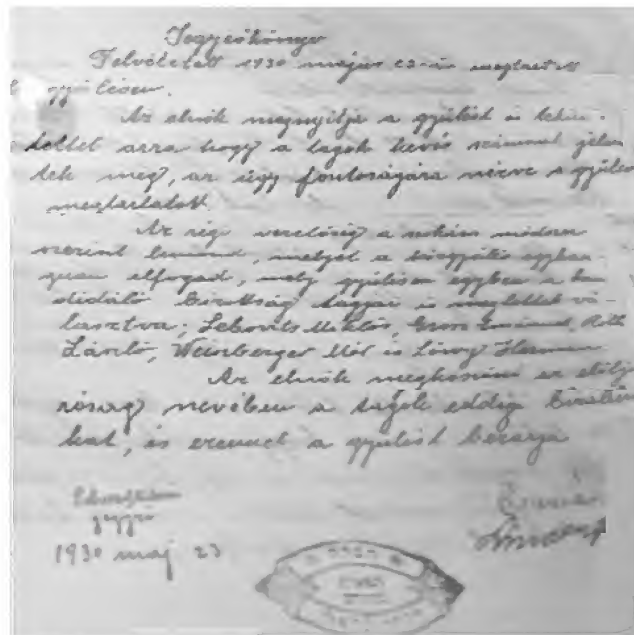 Jegyzőkönyv
Felvétetett 1930 május 23-án megtartott
gyülésen.
Az elnök megnyitja a gyülést és tekin-
tettel arra hogy a tagok kevés számmal jelen
tek meg, az ügy fontoságára nézve a gyülés
megtartatott.
Az régi vezetőség a szokásos módszer
szerint lemond, melyet a közgyülés egyhan-
guan elfogad, mely gyülésen egyben a kan
didáló Bizottság tagjai is meglettek vá-
lasztva; Lebovits Miklós, Gross Emánuel, Róth
László, Weinberger Mór és Lőwy Herman
Az elnök megköszöni az elölj
róság nevében a tagok eddigi bizalmu
kat, és ezennel a gyülést bezárja
jegyző
1930 maj 23